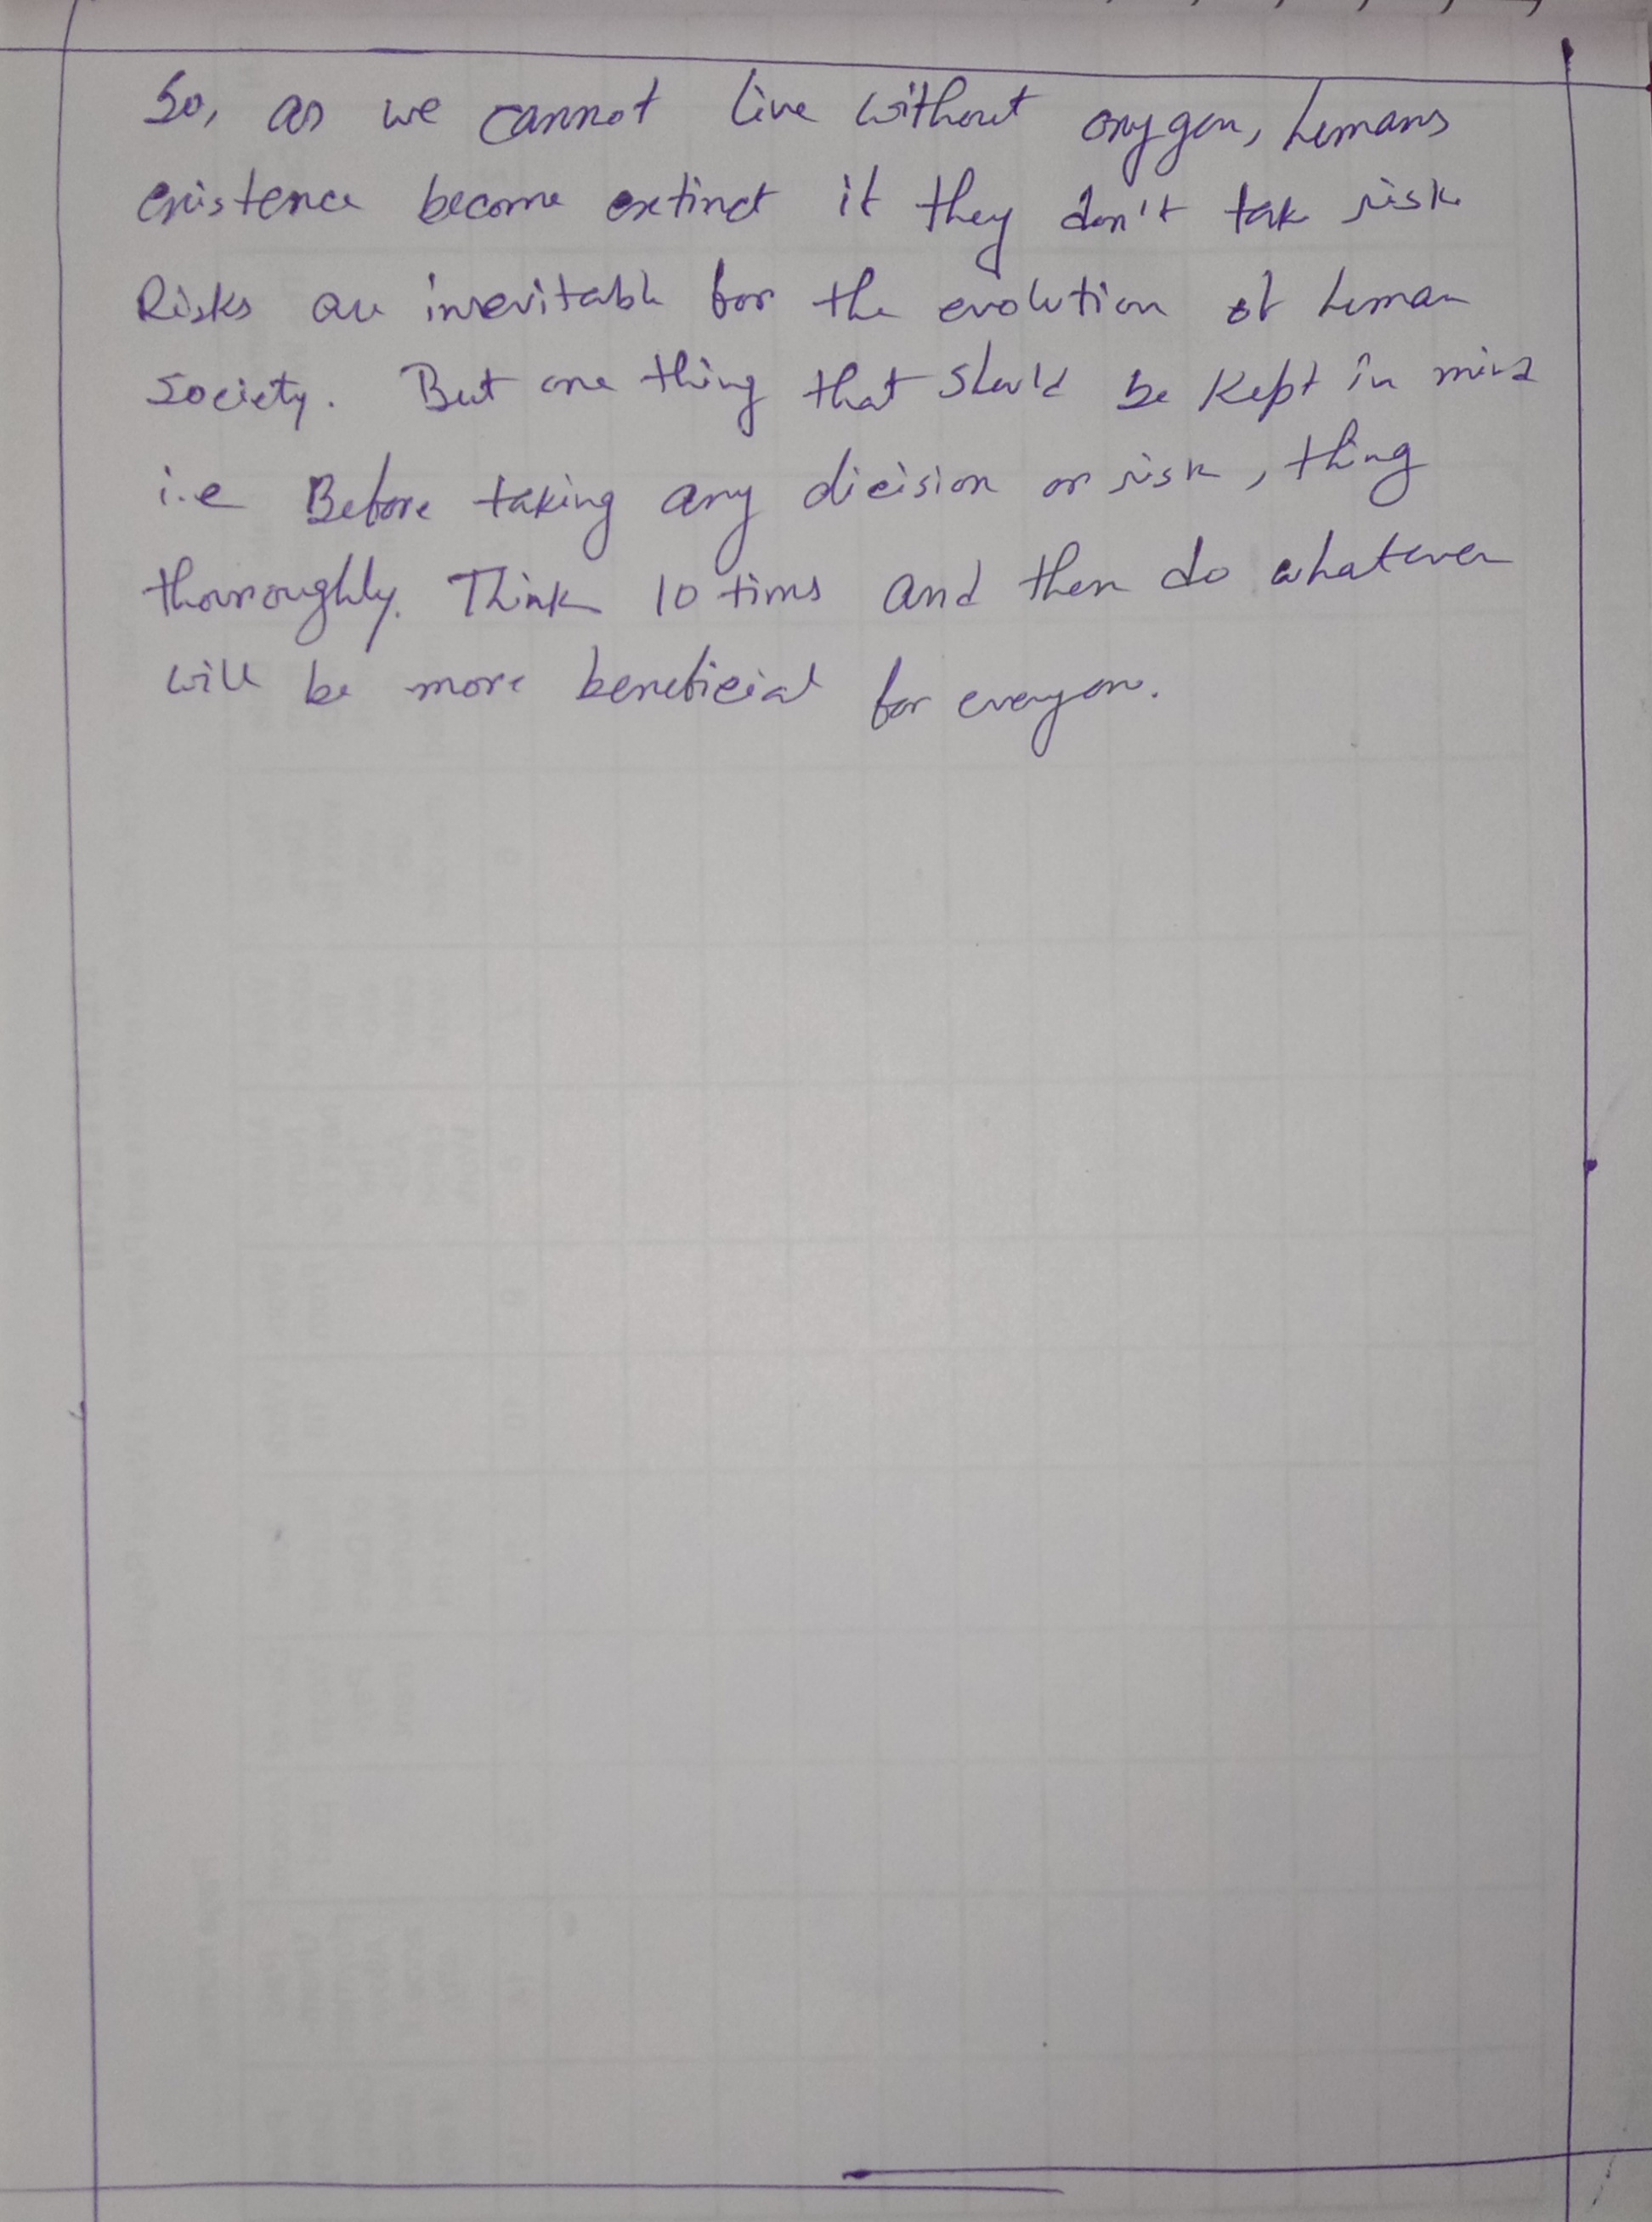 So, as we cannot live without oxygen, humans
existence become extinct if they don't take risk
Risks are inevitable for the evolution of human
society. But one thing that should be kept in mind
i.e Before taking any dicision or risk, thing
thorroughly. Think 10 times and then do whatever
will be more beneficial for everyone.